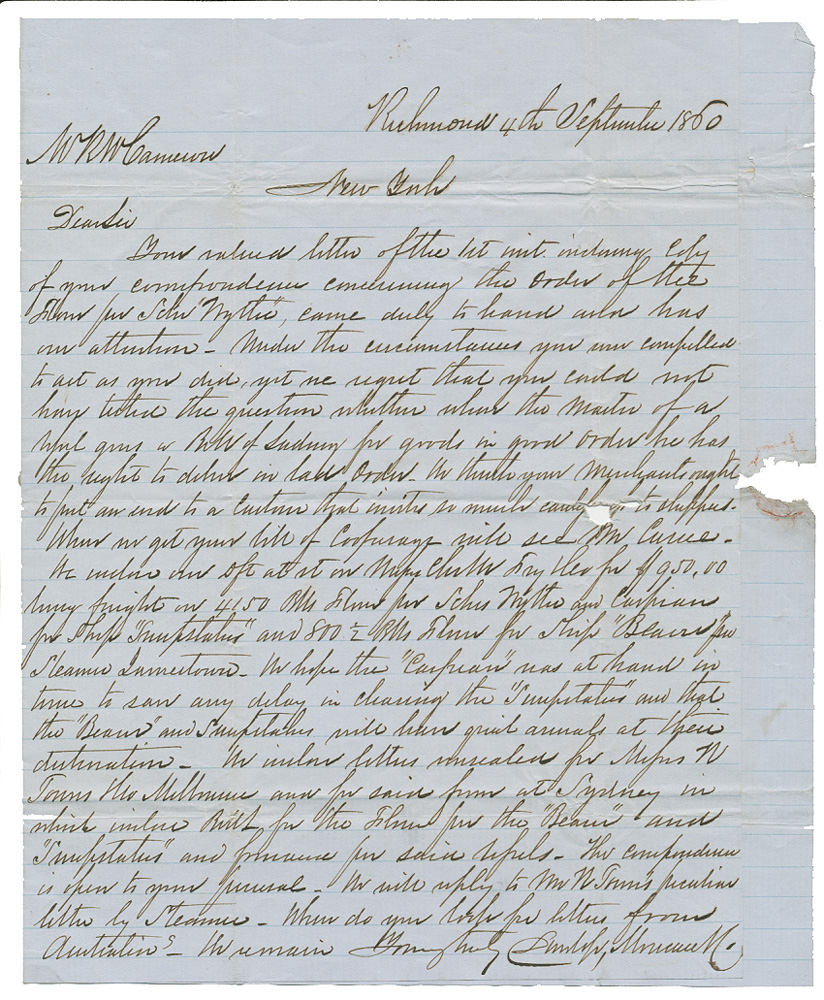 Richmond 4th September 1860
Mr R W Cameron
New York
Dear Sir
Your valued letter of the 1st inst. inclosing Copy
of your correspondence concerning the Order of the
Flour per Schr "Wythe", came duly to hand and has
our attention - Under the circumstances you were compelled
to act as you did, yet we regret that you could not
have tested the question whether when the Master of a
vessel gives a Bill of Lading for goods in good Order he has
the right to deliver in bad Order. We think your Merchants ought
to put an end to a Custom that invites so much to shippers.
When we get your bill of Cooperage will see Mr Currie.
We inclose our dft at st on Messrs Chs Fry & Co for $950,00
being freight on 4150 Bbls Flour per Schrs Wythe and Caspian
for Ship "Jumpstatus" and 800 ½ Bbls Flour for Ship "Beaver" per
Steamer Jamestown. We hope the "Caspian" was at hand in
time to save any delay in clearing the "Jumpstatus" and that
the "Beaver" and Jumpstatus will have quick arrivals at their
destination - We inclose letters unsealed for Messrs R
Towns & Co Melbourne and for said firm at Sydney in
which inclose B/L for the Flour per the "Beaver" and
"Jumpstatus" and for said vessels - The correspondence
is open to your perusal - We will reply to Mr R Towns peculiar
letter by Steamer - When do you look for letters from
Australia? - We remain Yours truly Dunlop, Moncure & Co.